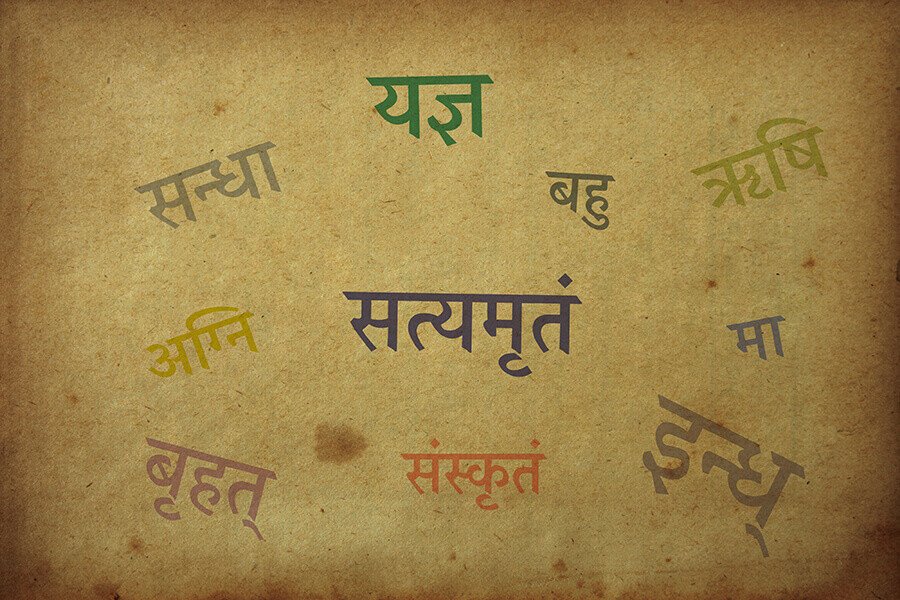 यज्ञ
सन्धा
बहु
ऋषि
सत्यमृतं
अग्नि
मा
बृहत्
संस्कृतं
इन्ध्